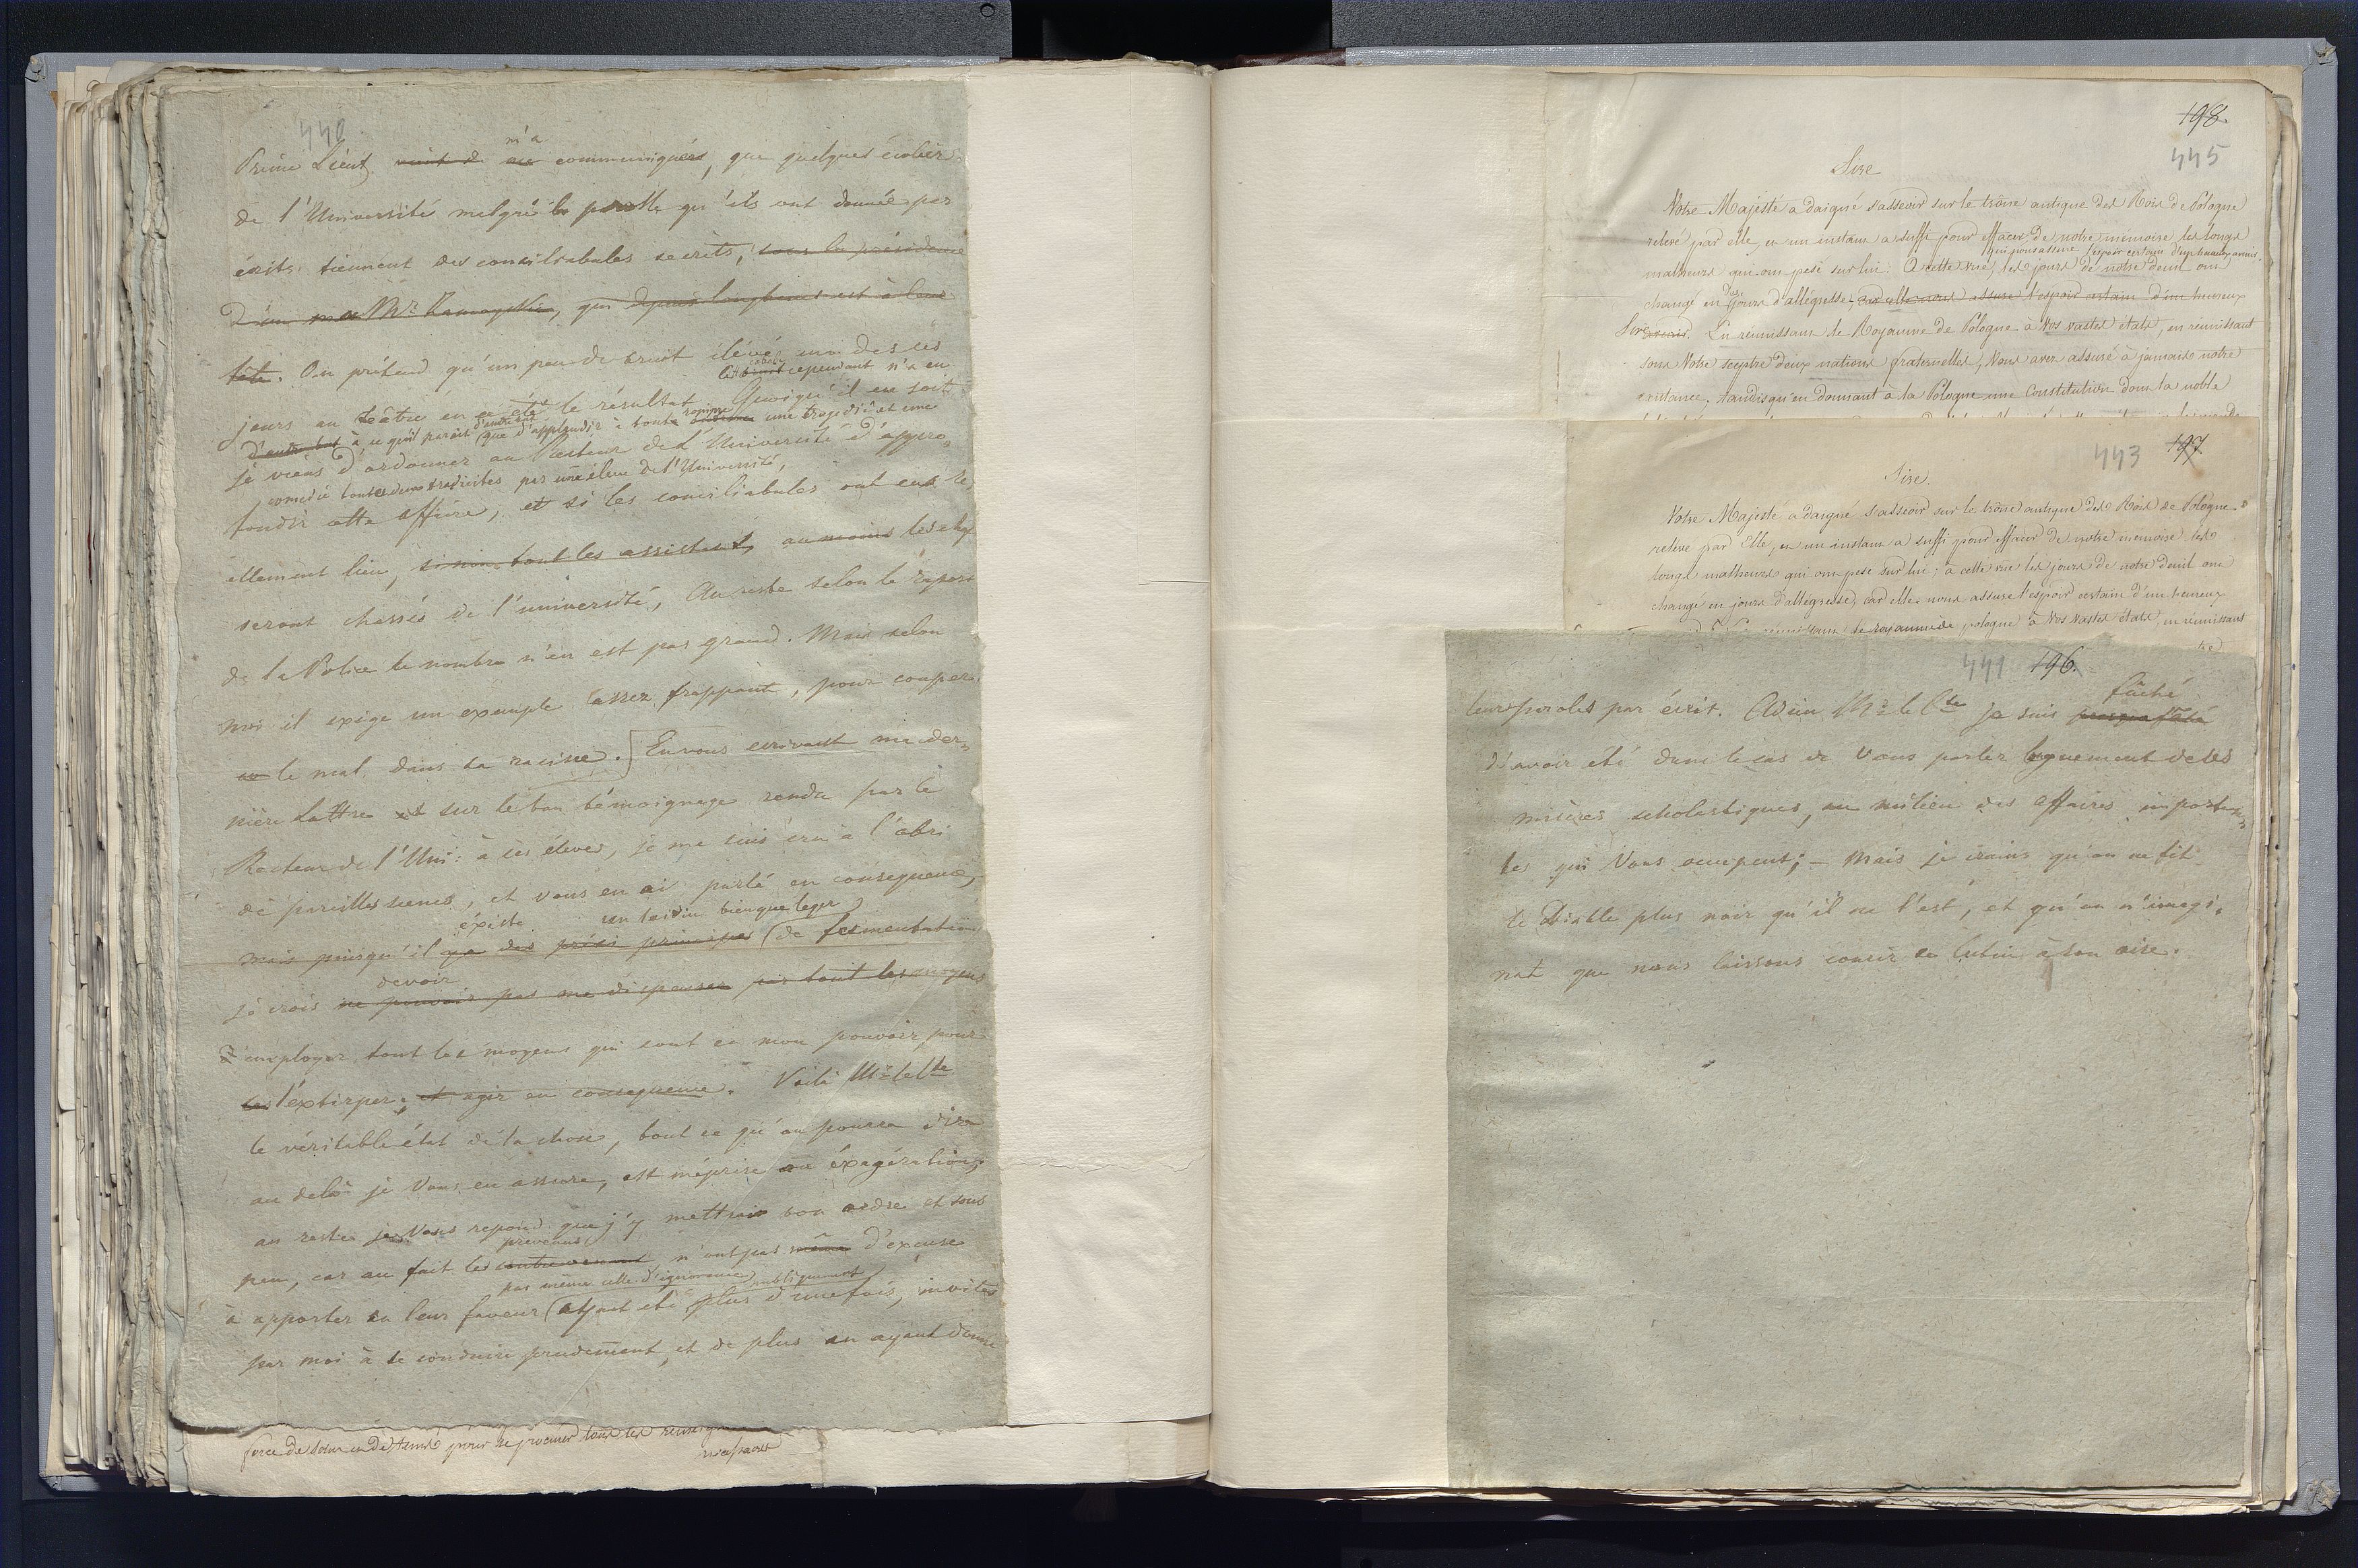 440
m'a
Prince Lieut. vient de me communiquér, que quelques écoliers
de l'Université malgré la parolle qu'ils ont donnée par
écrits tiennent des conciliabules secrèts, sous la présidence
d'un Mr:, qui depuis longtems est à leur
tête. On prétend qu'un peu de bruit élévé un des ces
cependant n'a eu
jours au teâtre en a été le résultat Quoiqu'il en soit
à ce qu'il parait que d'applaudir à toute une tragedie et une
je viens d'ordonner au Recteur de l'Université d'appro-
comedie toutes deux traduites par un élève de l'Université,
fondir cette affaire, et si les conciliabules ont eus ré-
ellement lieu, sinon tout les assistent, au moins les chefs
seront chassés de l'université, Au reste selon le raport
de la Police le nombre n'en est pas grand. Mais selon
moi il exige un exemple assez frappant, pour couper
le mal dans sa racine. En vous ecrivant ma der-
nière lettre et sur le bon témoignage rendu par le
Recteur de l'Uni: à ses élèves, je me suis cru à l'abri
de pareilles scenes, et vous en ai parlé en conséquence,
éxiste un levin bien que leger
mais puisqu'il y a des principes de fermentation
devoir
je crois ne pouvoir pas me dispenser par tout les moyens
d'employer tout les moyens qui sont en mon pouvoir pour
les l'éxtirper; et agir en conséquence. Voilà Mr: le Cte
le véritable état de la chose, tout ce qu'on pourra dire
au delà je Vous en assure, est méprise ou éxagération,
au reste je Vous repond que j'y mettrais bon ordre et sous
prevenus
peu, car au fait les contrevenant n'ont pas même d'excuse
pas même celle d'ignorance publiquement
à apporter en leur faveur ayant été plus d'une fois, invités
par moi à se conduire prudemment, et de plus en ayant donné
force de soins et de tems pour se procurer tous les
198.
445
Sire
Votre Majesté a daigné s'asseoir sur le trône antique des Rois de Pologne
relevé par elle, et un instant a suffi pour effacer de notre mémoire les longs
qui nous assure l'espoir certain d'un heureux avenir.
malheurs qui ont pesé sur lui: à cette vue, les jours de notre deuil ont
des
changé en jours d'allégresse, car elle nous assure l'espoir certain d'un heureux
Sire avenir. En réunissant le Royaume de Pologne à Vos vastes états, en réunissant
sous Votre sceptre deux nations fraternelles, Vous avez assuré à jamais notre
existance, tandisqu'en donnant à la Pologne une Constitution dont la noble
443 197
Sire.
Votre Majesté a daigné s'asseoir sur le trône antique des Rois de Pologne
relevé par Elle, et un instant a suffi pour effacer de notre memoire les
longs malheurs qui ont pesé sur lui: à cette vue les jours de notre deuil ont
changé en jours d'allégresse, car elle nous assure l'espoir certain d'un heureux
le royaume de pologne à Vos vastes états, en réunissant
441 196.
fâché
leurs paroles par écrit. Adieu Mr: le Cte je suis
d'avoir été dans le cas de Vous parler longuement de ces
misères scholastiques, au milieu des affaires importan-
tes qui Vous occupent; – Mais je crains qu'on ne fit
le Diable plus noir qu'il ne l'est, et qu'on n'imagi-
nat que nous laissons courir ce lutin à son aise.